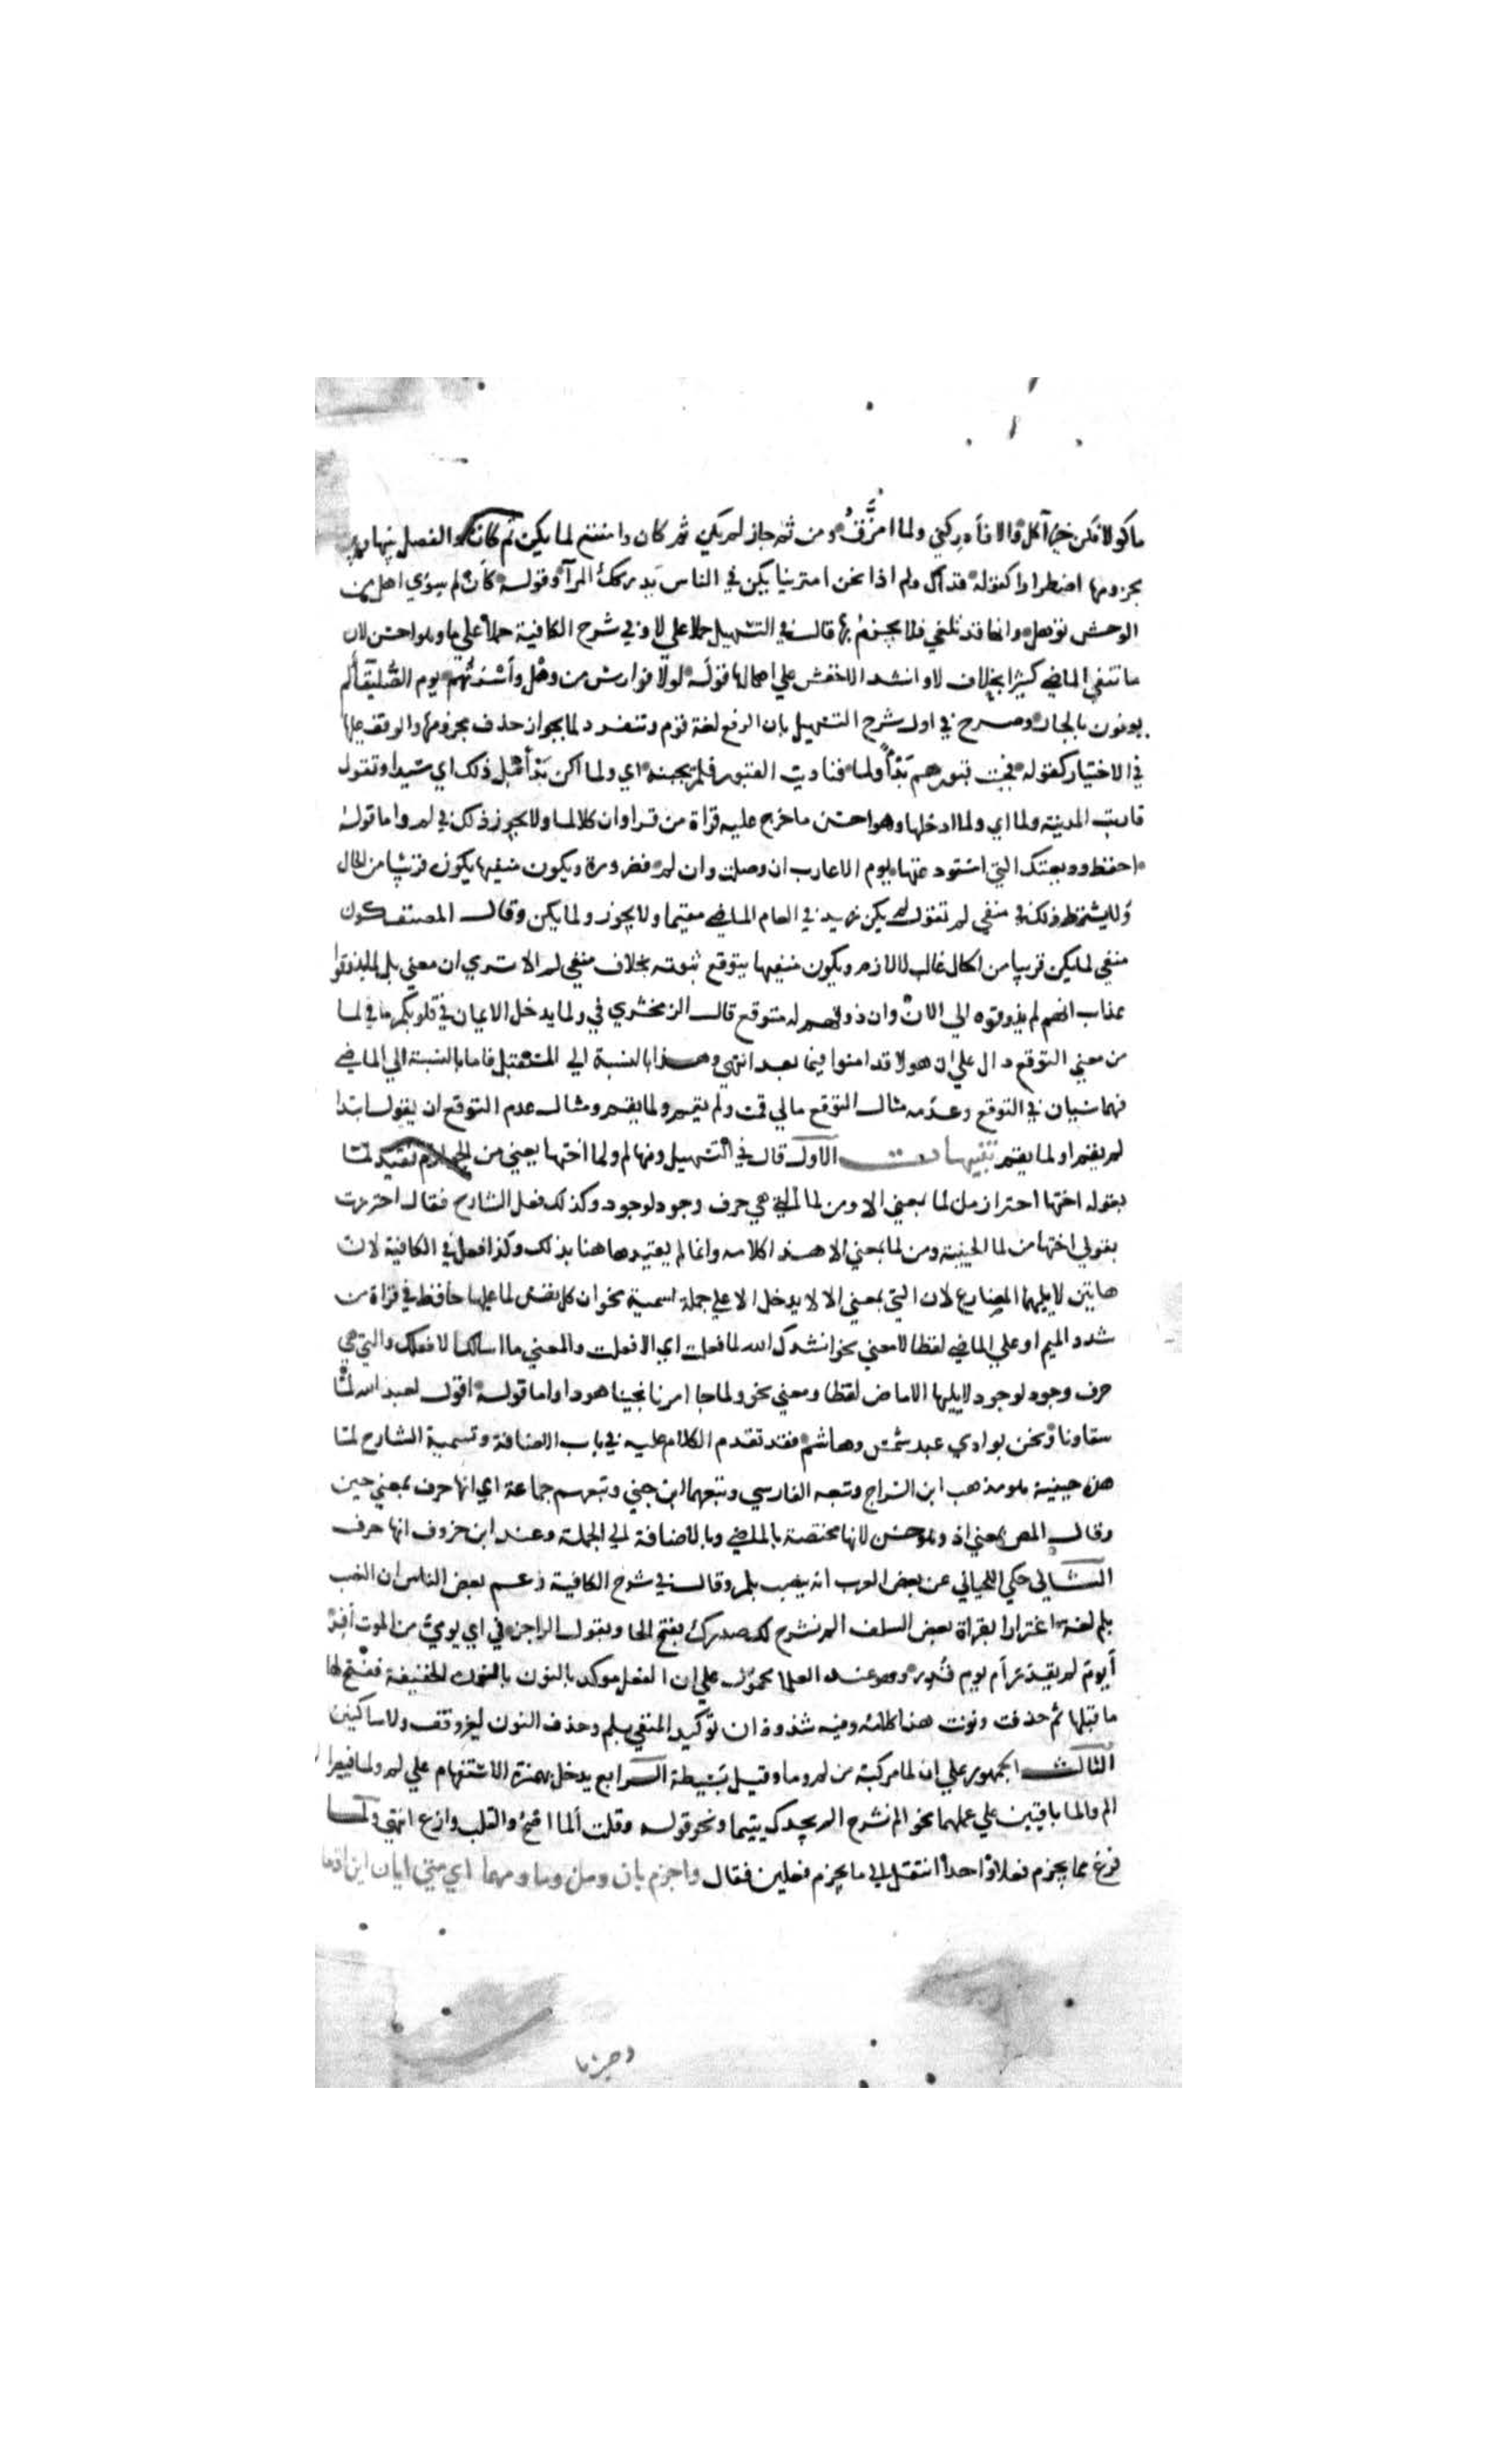 ماكولا فكن خير آكل والا فأدركني ولما امزَّقُ ومن ثم جاز لم يكن ثم كان وامتنع لما يكن ثم كان والفصل بينها وبين
مجزومها اضطرارا كقوله فذاك ولم اذا نحن امترينا يكن في الناس يدركك المرآ وقوله كأن لم سوي اهل من
الوحش توهل وانها قد تلغي فلا يجزم بها قال في التسهيل حملا علي لا وفي شرح الكافية حملا علي ما وهو احسن لان
ما تنفي الماضي كثيرا بخلاف لا وانشد الاخفش علي اهمالها قوله لولا فوارس من وهل وأسرتهم يوم الصليفا لم
يوفون بالجار وصرح في اول شرح التسهيل بان الرفع لغة قوم وتنفرد لما بجواز حذف مجزومها والوقف عليها
في الاختيار كقوله فجيت قبورهم بَدْأً ولما فناديت القبور فلم يجبنه اي ولما اكن بدأ قبل ذلك اي سيدا وتقول
قاربت المدينة ولما اي ولما ادخلها وهو احسن ما خرج عليه قراة من قرا وان كلا لما ولا يجوز ذلك في لم واما قوله
احفظ وديعتك التي استودعتها يوم الاعارب ان وصلت وان لم فضرورة وبكون منفيها يكون قريبا من الحال
ولا يشترط ذلك في منفي لم تقول لم يكن زيد في العام الماضي مقيما ولا يجوز ولما يكن وقال المصنف كون
منفي لما يكن قريبا من الحال غالب لا لازم ويكون منفيها يتوقع ثبوته بخلاف منفي لم الا تري ان معني بل لما يذوقوا
عذاب انهم لم يذوقوه الي الان وان ذوقهم له متوقع قال الزمخشري في ولما يدخل الايمان في قلوبكم ما في لما
من معني التوقع دال علي ان هولا قد امنوا فيما بعد انتهي وهذا بالنسبة الي المستقبل فاما بالنسبة الي الماضي
فهما سيان في التوقع وعدمه مثال التوقع مالي قمت ولم تقم ولما تقم ومثال عدم التوقع ان يقول ابتدا
لم يقم او لما يقم تنبيهات الاول قال في التسهيل ومنها لم ولما اختها يعني من الجوازم فقيد لما
بقوله اختها احترازا من لما بمعني الا ومن لما التي هي حرف وجود لوجود وكذلك فعل الشارح فقال احترزت
بقولي اختها من لما الحينية ومن لما بمعني الا هذا كلامه وانما لم يقيدها هنا بذلك وكذا فعل في الكافية لان
هاتين لا يليهما المضارع لان التي بمعني الا لا يدخل الا علي جملة اسمية نحو ان كل نفس لما عليها حافظ في قراة من
شدد الميم او علي الماضي لفظا لا معني نحو انشدك الله لما فعلت اي الا فعلت والمعني ما اسالك الا فعلك والتي هي
حرف وجود لوجود لا يليها الا ماض لفظا ومعني نحو ولما جا امرنا نجينا هودا واما قوله اقول لعبد الله لما
سقاونا ونحن بوادي عبد شمس وهاشم فقد تقدم الكلام عليه في باب الاضافة وتسمية الشارح لما
هن حينية هو مذهب ابن السراج وتبعه الفارسي وتبعهما ابن جني وتبعهم جماعة اي انها حرف بمعني حين
وقال المص بمعني اذ وهو حسن لانها مختصة بالماضي وبالاضافة الي الجملة وعند ابن خروف انها حرف
الثاني حكي اللحياني عن بعض العرب انه ينصب بلم وقال في شرح الكافية زعم بعض الناس ان النصب
بلم لغة اغترارا بقراة بعض السلف الم نشرح لك صدرك بفتح الحا وبقول الراجز في اي يوميّ من الموت أفِرّ
أيوم لم يقدر أم يوم قُدِر وهو عند العلما محمول علي ان الفعل موكد بالنون بالنون الخفيفة ففتح لها
ما قبلها ثم حذفت ونونت هذا كلامه وفيه شذوذ ان توكيد المنفي بلم وحذف النون لغير وقف ولا ساكنين
الثالث الجمهور علي ان لما مركبة من لم وما وقيل بسيطة الرابع يدخل همزة الاستفهام علي لم ولما فيصيرا
الم والما باقيتين علي عملهما نحو الم نشرح الم يجدك يتيما ونحو قوله وقلت ألما اصح والقلب وازع انتهي ولما
فرغ مما يجزم فعلا واحدا انتقل الي ما يجزم فعلين فقال واجزم بان ومن وما ومهما اي متي ايان اين اذما
وحيثما